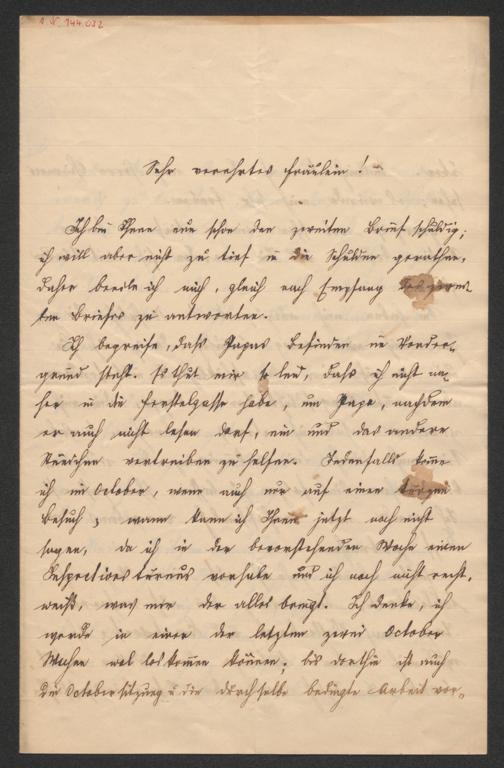 A.N. 144.032
Sehr verehrtes Fräulein!
Ich bin Ihnen nun schon den zweiten Brief schuldig;
ich will aber nicht zu tief in die Schulden gerathen,
daher beeile ich mich, gleich nach Empfang des zwei-
ten Briefes zu antworten.
Ich begreife, dass Papas Befinden im Vorder-
grund steht. Es thut mir so leid, dass ich nicht nä-
her in die Ferstelgasse habe, um Papa, nachdem
er auch nicht lesen darf, ein und das andere
Stündchen vertreiben zu helfen. Jedenfalls komme
ich im October, wenn auch nur auf einen kurzen
Besuch; wann kann ich Ihnen jetzt noch nicht
sagen, da ich in der bevorstehenden Woche einen
Inspectionsturnus vorhabe und ich noch nicht recht
weiß, was mir der alles bringt. Ich denke, ich
werde in einer der letzten zwei October
Wochen wol loskommen können; bis dorthin ist auch
die Octobersitzung u. die durch selbe bedingte Arbeit vor-